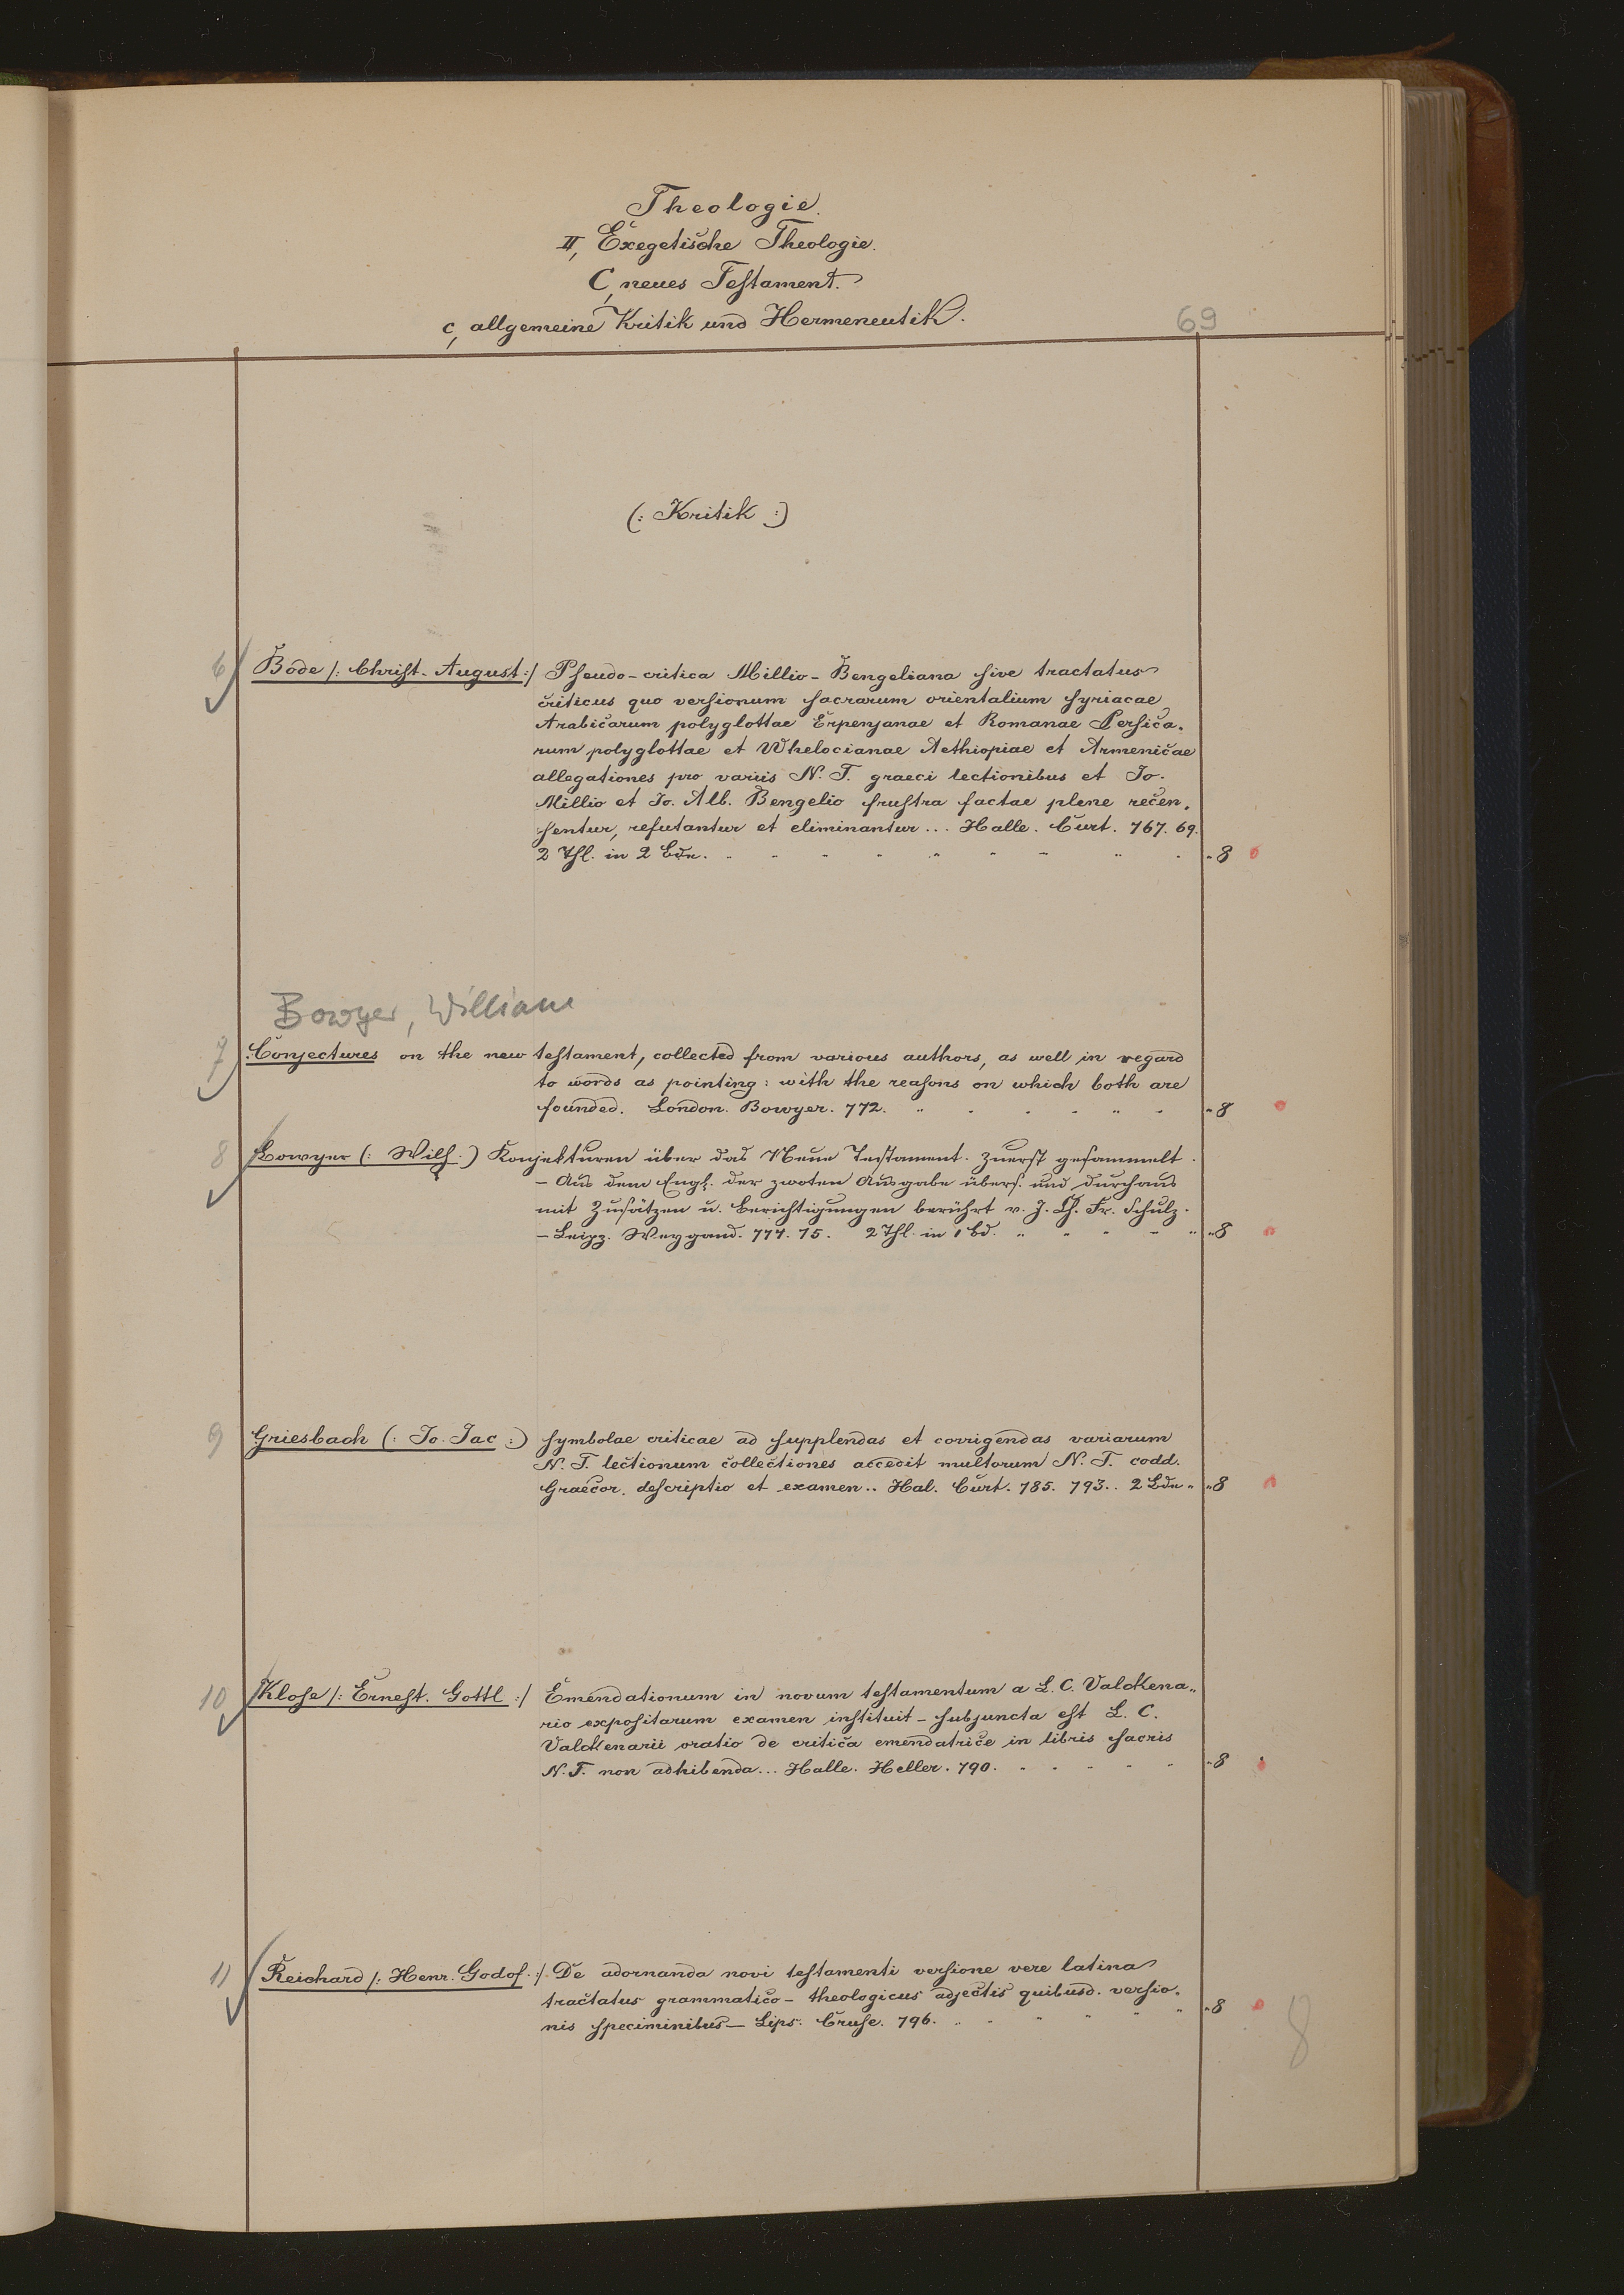 Theologie.
II, Exegetische Theologie.
C, neues Testament.
c, allgemeine Kritik und Hermeneutik.
69
(: Kritik :)
6 Bode /: Christ. August :/ Pseudo-critica Millio-Bengeliana sive tractatus
criticus quo versionum sacrarum orientalium syriacae
Arabicarum polyglottae Erpenjanae et Romanae Persica-
rum polyglottae et Whelocianae Aethiopiae et Armenicae
allegationes pro variis N. T. graeci lectionibus et Jo.
Millio et Jo. Alb. Bengelio frustra factae plene recen-
sentur, refutantur et eliminantur... Halle. Curt. 767. 69.
2 Thl. in 2 Bdn. 8
Bowyer, William
7 Conjectures on the new testament, collected from various authors, as well in regard
to words as pointing: with the reasons on which both are
founded. London. Bowyer. 772. 8
8 Bowyer (: Wilh :) Konjekturen über das Neue Testament. Zuerst gesammelt.
– Aus dem Engl. der zwoten Ausgabe übers. und durchaus
mit Zusätzen u. Berichtigungen berührt v. J. Ch. Fr. Schulz.
– Leipz. Weygand. 774. 75. 2 Thl. in 1 Bd. 8
9 Griesbach (: Jo. Jac :) symbolae criticae ad supplendas et corrigendas variarum
N. T. lectionum collectiones accedit multorum N. T. codd.
Graecor. descriptio et examen.. Hal. Curt. 785. 793.. 2 Bdn 8
10 Klose /: Ernest. Gottl :/ Emendationum in novum testamentum a L. C. Valckena-
rio expositarum examen instituit – subjuncta est L. C.
Valckenarii oratio de critica emendatrice in libris sacris
N. T. non adhibenda... Halle. Heller. 790. 8
11 Reichard /: Henr. Godof. :/ De adornanda novi testamenti versione vere latina
tractatus grammatico-theologicus adjectis quibusd. versio-
nis speciminibus – Lips. Cruse. 796. 8
8